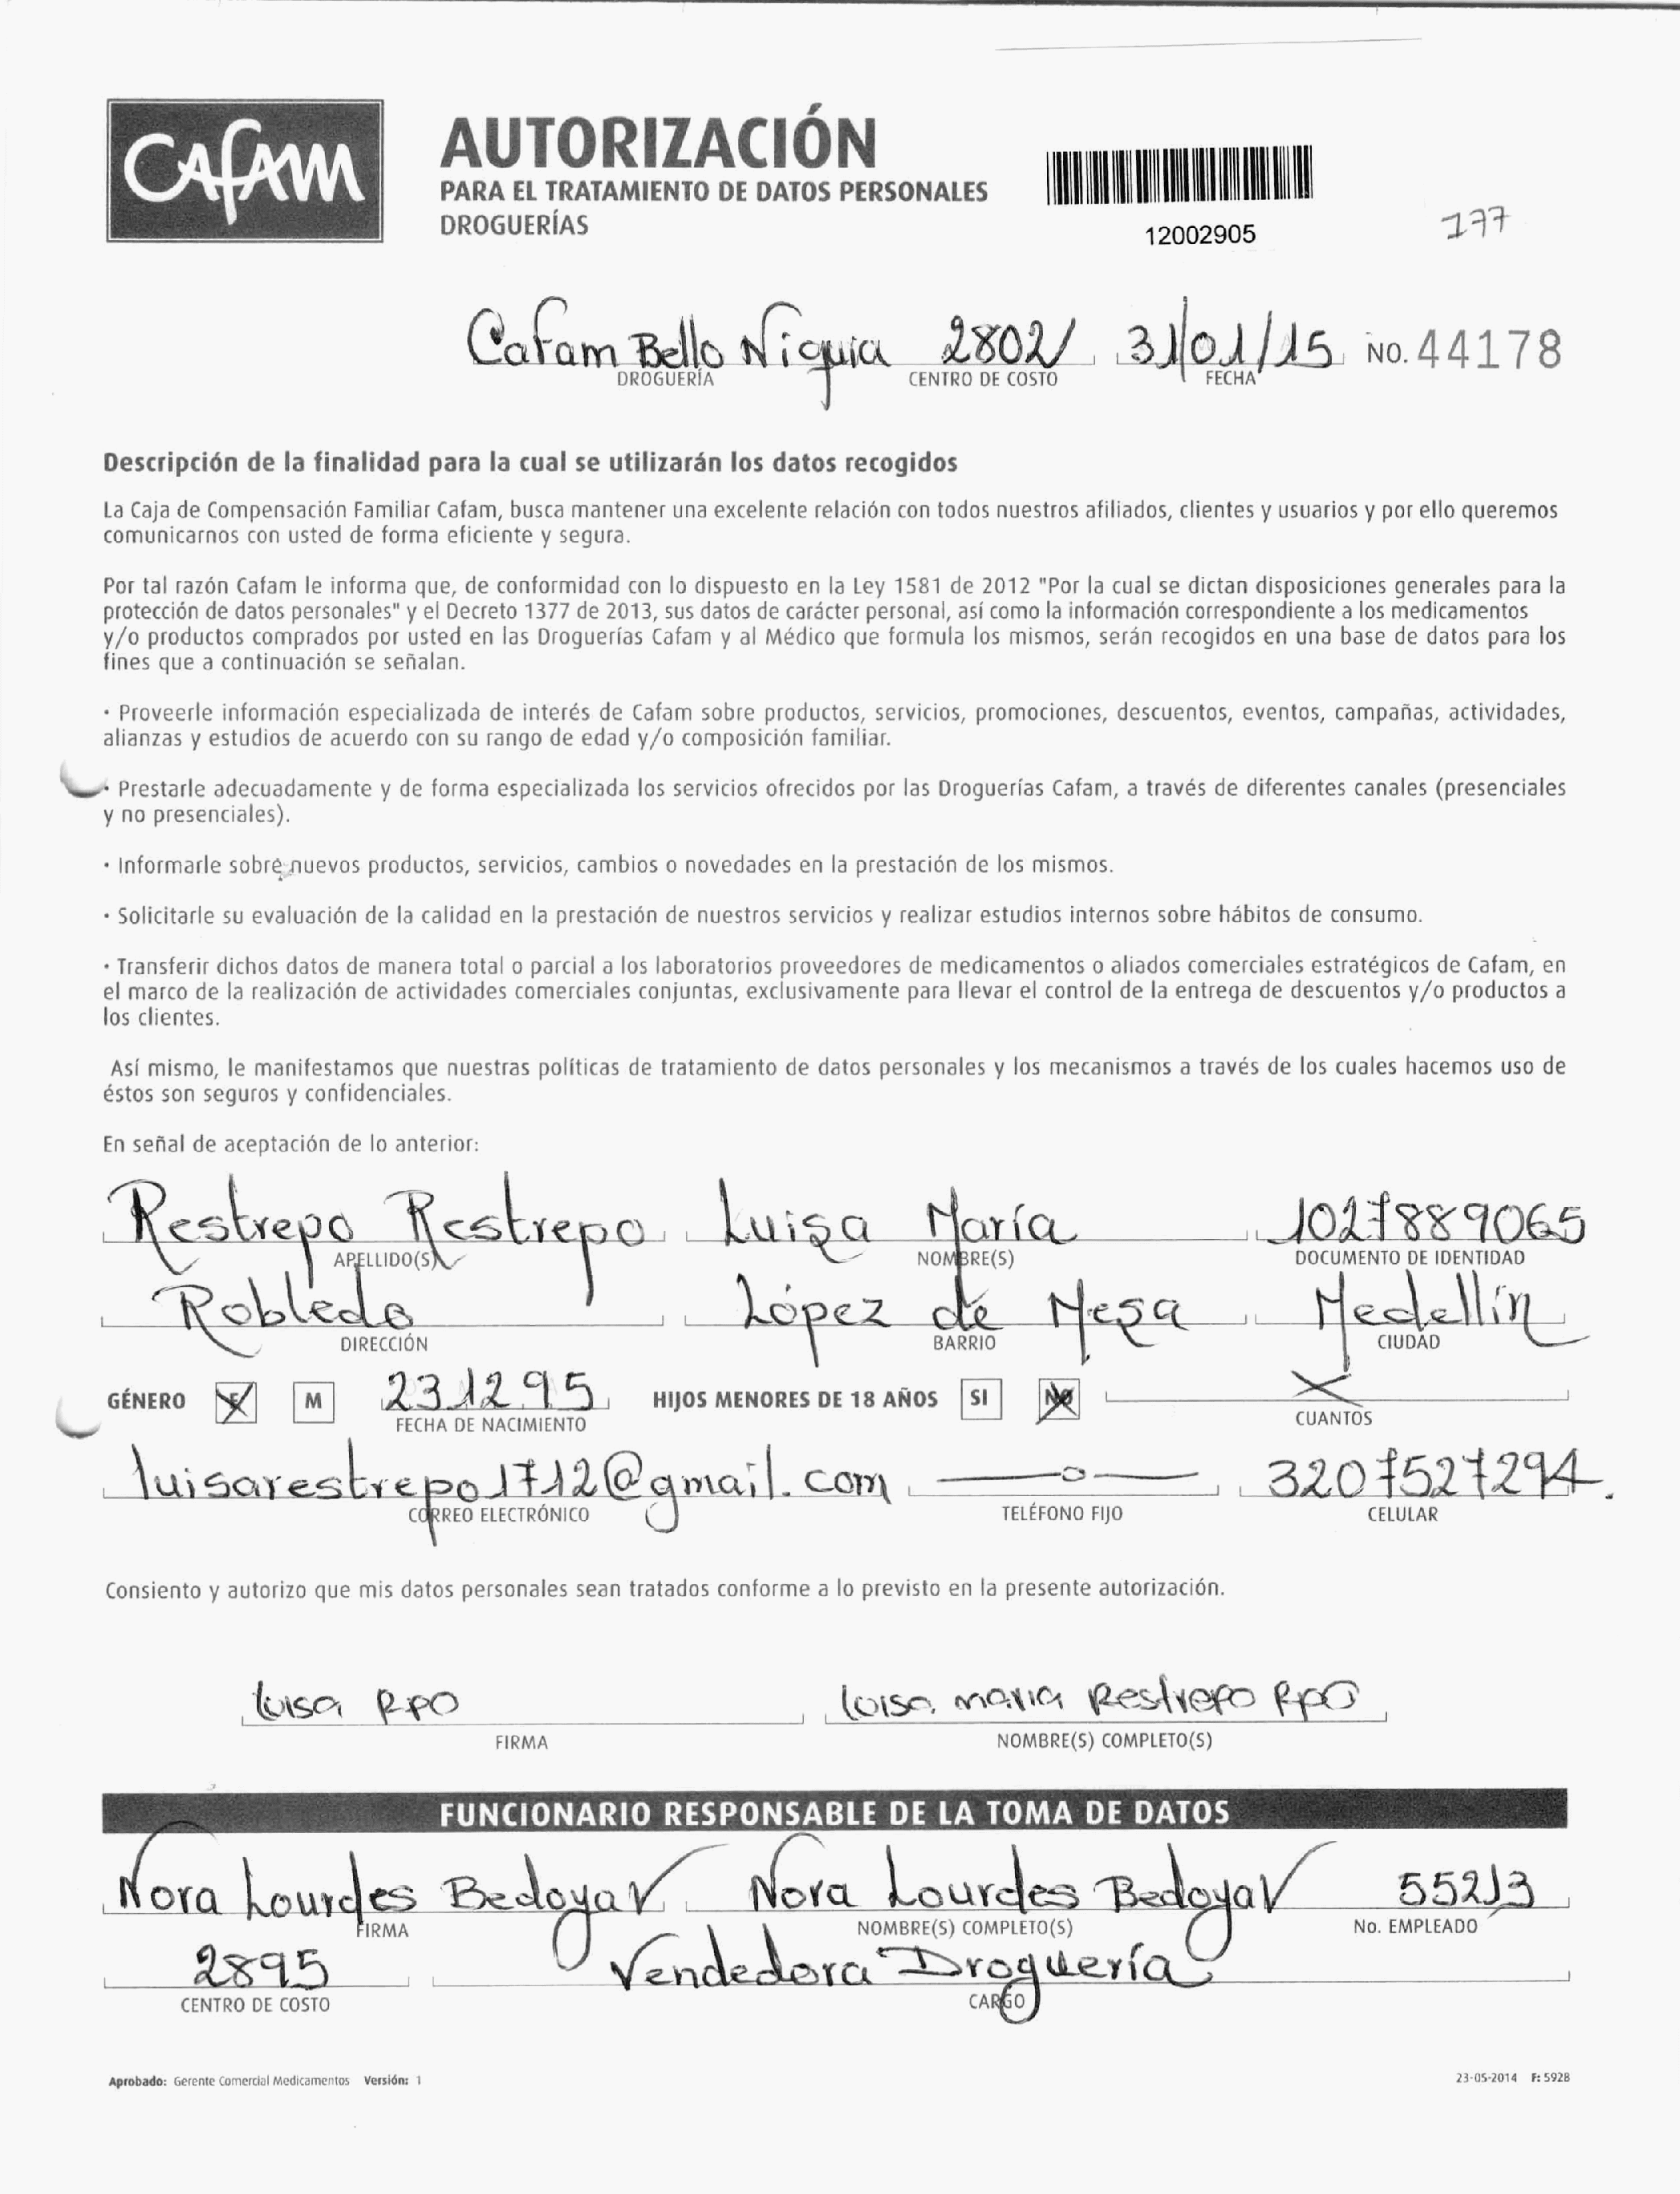 Cafam
AUTORIZACIÓN
PARA EL TRATAMIENTO DE DATOS PERSONALES
DROGUERÍAS
12002905
177
Cafam Bello Niquia 2802 31/01/15 NO. 44178
DROGUERÍA CENTRO DE COSTO FECHA
Descripción de la finalidad para la cual se utilizarán los datos recogidos
La Caja de Compensación Familiar Cafam, busca mantener una excelente relación con todos nuestros afiliados, clientes y usuarios y por ello queremos
comunicarnos con usted de forma eficiente y segura.
Por tal razón Cafam le informa que, de conformidad con lo dispuesto en la Ley 1581 de 2012 "Por la cual se dictan disposiciones generales para la
protección de datos personales" y el Decreto 1377 de 2013, sus datos de carácter personal, así como la información correspondiente a los medicamentos
y/o productos comprados por usted en las Droguerías Cafam y al Médico que formula los mismos, serán recogidos en una base de datos para los
fines que a continuación se señalan.
· Proveerle información especializada de interés de Cafam sobre productos, servicios, promociones, descuentos, eventos, campañas, actividades,
alianzas y estudios de acuerdo con su rango de edad y/o composición familiar.
· Prestarle adecuadamente y de forma especializada los servicios ofrecidos por las Droguerías Cafam, a través de diferentes canales (presenciales
y no presenciales).
· Informarle sobre nuevos productos, servicios, cambios o novedades en la prestación de los mismos.
· Solicitarle su evaluación de la calidad en la prestación de nuestros servicios y realizar estudios internos sobre hábitos de consumo.
· Transferir dichos datos de manera total o parcial a los laboratorios proveedores de medicamentos o aliados comerciales estratégicos de Cafam, en
el marco de la realización de actividades comerciales conjuntas, exclusivamente para llevar el control de la entrega de descuentos y/o productos a
los clientes.
Así mismo, le manifestamos que nuestras políticas de tratamiento de datos personales y los mecanismos a través de los cuales hacemos uso de
éstos son seguros y confidenciales.
En señal de aceptación de lo anterior:
Restrepo Restrepo Luisa María 1027889065
APELLIDO(S) NOMBRE(S) DOCUMENTO DE IDENTIDAD
Robledo López de Mesa Medellín
DIRECCIÓN BARRIO CIUDAD
GÉNERO F M 231295 HIJOS MENORES DE 18 AÑOS SI NO X
FECHA DE NACIMIENTO CUANTOS
luisarestrepo1712@gmail.com —o— 3207527294.
CORREO ELECTRÓNICO TELÉFONO FIJO CELULAR
Consiento y autorizo que mis datos personales sean tratados conforme a lo previsto en la presente autorización.
luisa Rpo luisa maria Restrepo Rpo
FIRMA NOMBRE(S) COMPLETO(S)
FUNCIONARIO RESPONSABLE DE LA TOMA DE DATOS
Nora Lourdes Bedoya V Nora Lourdes Bedoya V 55213
FIRMA NOMBRE(S) COMPLETO(S) No. EMPLEADO
2895 Vendedora Droguería
CENTRO DE COSTO CARGO
Aprobado: Gerente Comercial Medicamentos Versión: 1 23-05-2014 F: 5928